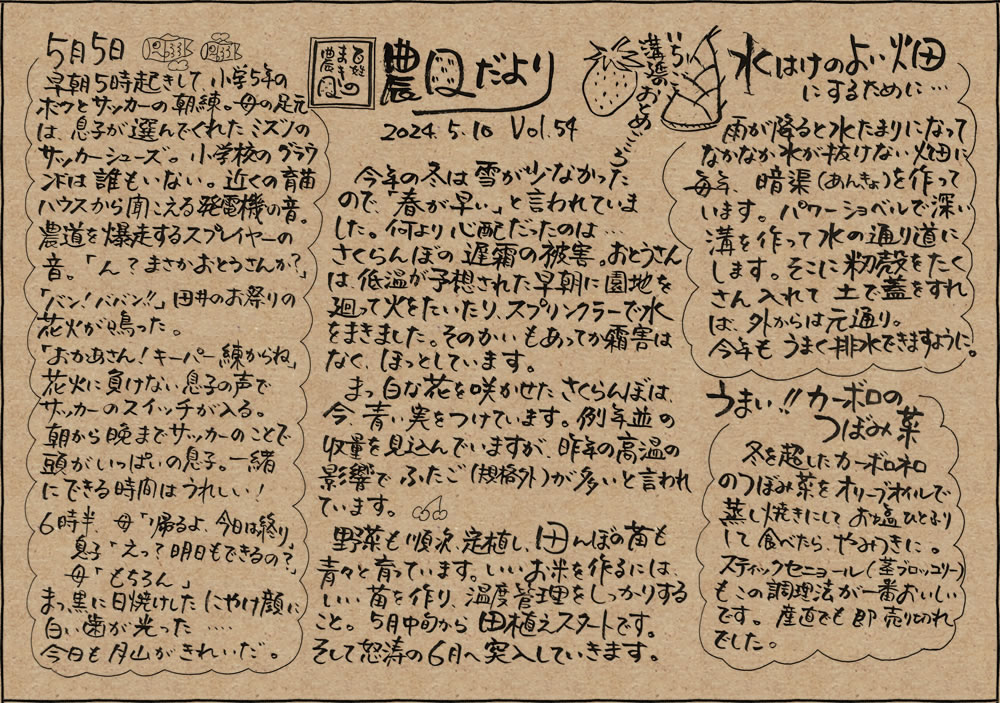 5月5日
早朝5時起きして、小学5年の
ボウとサッカーの朝練。母の足元
は、息子が選んでくれたミズノの
サッカーシューズ。小学校のグラウ
ンドは誰もいない。近くの育苗
ハウスから聞こえる発電機の音。
農道を爆走するスプレイヤーの
音。「ん?まさかおとうさんか?」
「バン!ババン!!」田井のお祭りの
花火が鳴った。
「おかあさん!キーパー練からね」
花火に負けない息子の声で
サッカーのスイッチが入る。
朝から晩までサッカーのことで
頭がいっぱいの息子。一緒
にできる時間はうれしい!
6時半、母「帰るよ、今日は終り」
息子「えっ?明日もできるの?」
母「もちろん」
まっ黒に日焼けしたにやけ顔に
白い歯が光った……
今日も月山がきれいだ。
農園だより
2024.5.10 Vol.54
いちご
溝延のおとめごころ
今年の冬は雪が少なかった
ので、「春が早い」と言われていま
した。何より心配だったのは…
さくらんぼの遅霜の被害。おとうさん
は、低温が予想された早朝に園地を
廻って火をたいたり、スプリンクラーで水
をまきました。そのかいもあってか霜害は
なく、ほっとしています。
まっ白な花を咲かせたさくらんぼは、
今、青い実をつけています。例年並の
収量を見込んでいますが、昨年の高温の
影響でふたご(規格外)が多いと言われ
ています。
野菜も順次、定植し、田んぼの苗も
青々と育っています。いいお米を作るには、
いい苗を作り、温度管理をしっかりする
こと。5月中旬から田植えスタートです。
そして怒涛の6月へ突入していきます。
水はけのよい畑
にするために…
雨が降ると水たまりになって
なかなか水が抜けない畑に
毎年、暗渠(あんきょ)を作って
います。パワーショベルで深い
溝を作って水の通り道に
します。そこに籾殻をたく
さん入れて土で蓋をすれ
ば、外からは元通り。
今年もうまく排水できますように。
うまい!!カーボロの
つぼみ菜
冬を越したカーボロネロ
のつぼみ菜をオリーブオイルで
蒸し焼きにしてお塩ひとふり
して食べたら、やみつきに。
スティックセニョール(茎ブロッコリー)
もこの調理法が一番おいしい
です。産直でも即売り切れ
でした。